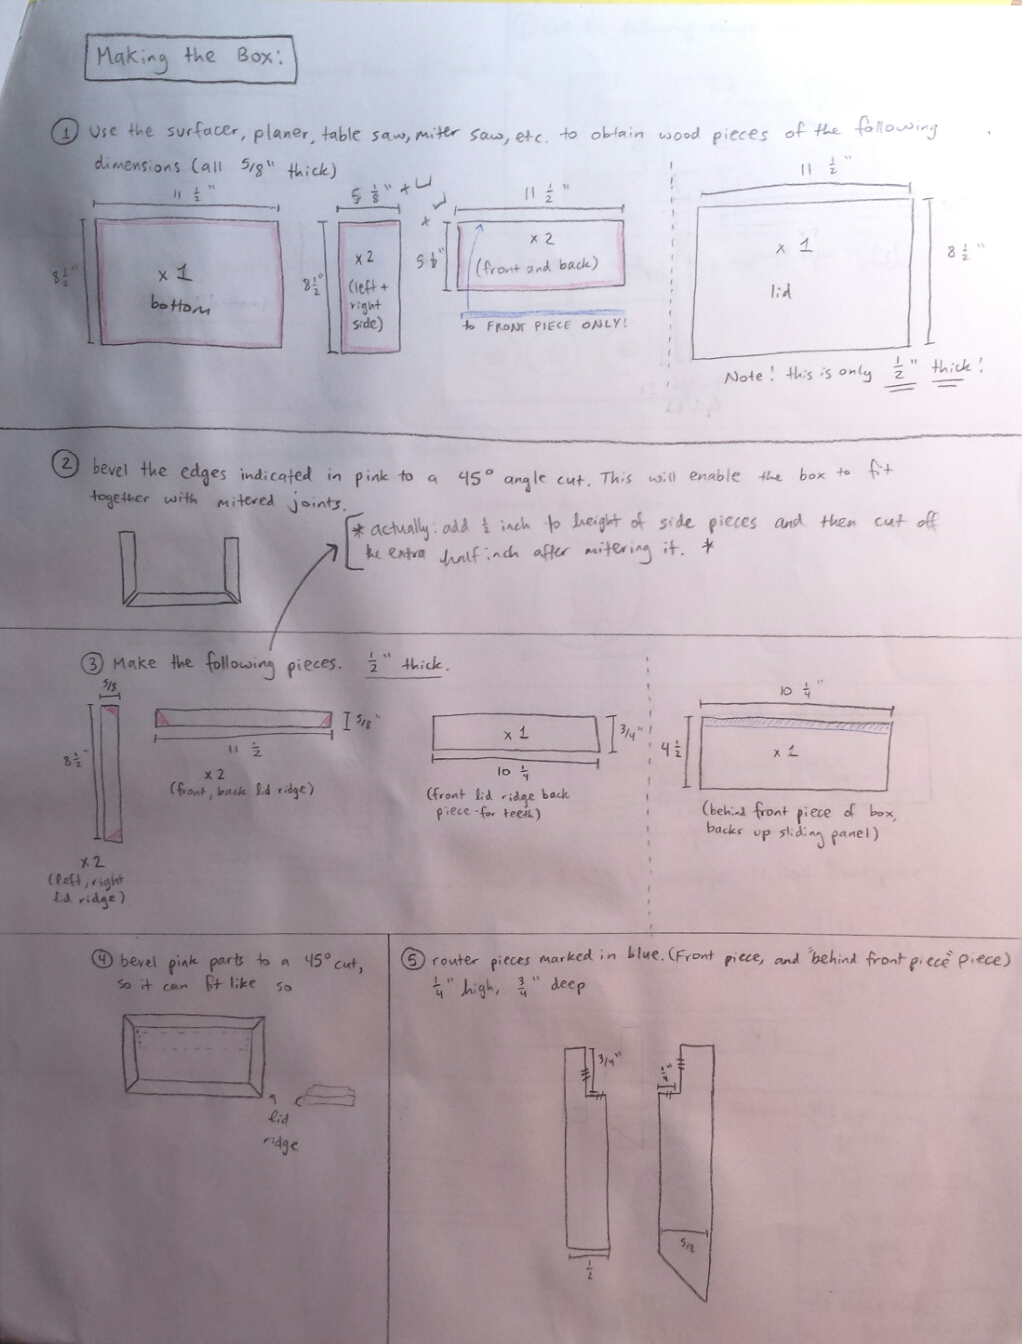 Making the Box:
① Use the surfacer, planer, table saw, miter saw, etc. to obtain wood pieces of the following
dimensions (all 5/8" thick)
11 1/2"
8 1/2"
x 1
bottom
5 1/8"
8 1/2"
x 2
(left +
right
side)
11 1/2"
5 1/8"
x 2
(front and back)
to FRONT PIECE ONLY!
11 1/2"
x 1
lid
8 1/2"
Note! this is only 1/2" thick!
② bevel the edges indicated in pink to a 45° angle cut. This will enable the box to fit
together with mitered joints.
* actually: add 1/2 inch to height of side pieces and then cut off
the extra half inch after mitering it. *
③ Make the following pieces. 1/2" thick.
5/8
8 1/2"
x 2
(left, right
lid ridge)
5/8"
11 1/2
x 2
(front, back lid ridge)
x 1
3/4"
10 1/4
(front lid ridge back
piece-for teeth)
10 1/4"
4 1/2
x 1
(behind front piece of box,
backs up sliding panel)
④ bevel pink parts to a 45° cut,
so it can fit like so
lid
ridge
⑤ router pieces marked in blue. (Front piece, and "behind front piece" piece)
1/4" high, 3/4" deep
3/4"
1/2
5/8